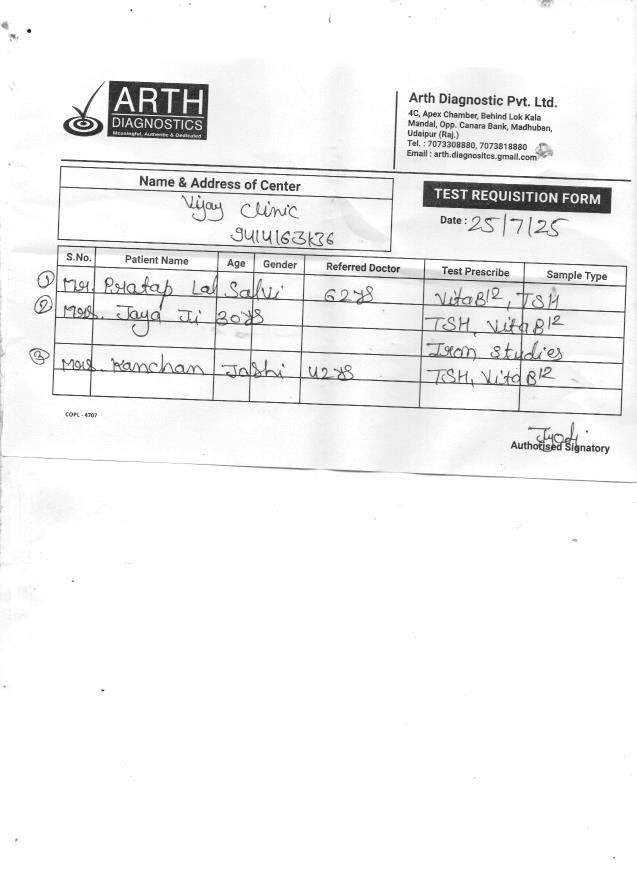 ARTH
DIAGNOSTICS
Meaningful, Authentic & Dedicated
Arth Diagnostic Pvt. Ltd.
4C, Apex Chamber, Behind Lok Kala
Mandal, Opp. Canara Bank, Madhuban,
Udaipur (Raj.)
Tel. : 7073308880, 7073818880
Email : arth.diagnositcs.gmail.com
Name & Address of Center
Vijay Clinic
TEST REQUISITION FORM
Date : 25/7/25
S.No. Patient Name Age Gender Referred Doctor Test Prescribe Sample Type
1 Mr. Pratap Lal Salvi 62 VitaB12, TSH
2 Mrs. Jaya Ji 30 TSH, VitaB12
Iron Studies
3 Mrs. Kanchan Joshi 42 TSH, VitaB12
COPL - 4707
Jyoti
Authorised Signatory